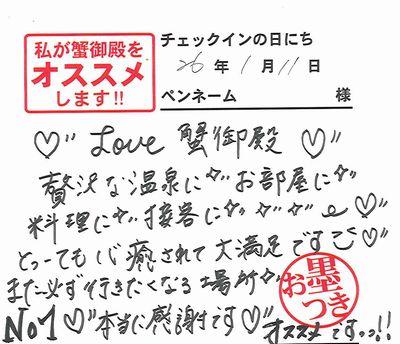 私が蟹御殿を
オススメ
します!!
チェックインの日にち
26年1月11日
ペンネーム 様
♡〃Love 蟹御殿♡〃
贅沢な温泉に〃お部屋に〃
料理に〃接客に
とってもバ癒されて大満足です♡〃
また必ず行きたくなる場所
No1♡〃本当に感謝です♡〃
オススメですっ!!
お墨つき